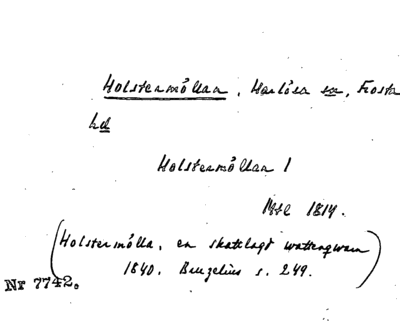 Holstermöllan, Harlösa sn, Frosta
hd
Holstermöllan 1
Mtl 1814.
(Holstermölla, en skattlagd wattenqwarn
1840. Bruzelius s. 249.)
Nr 7742.